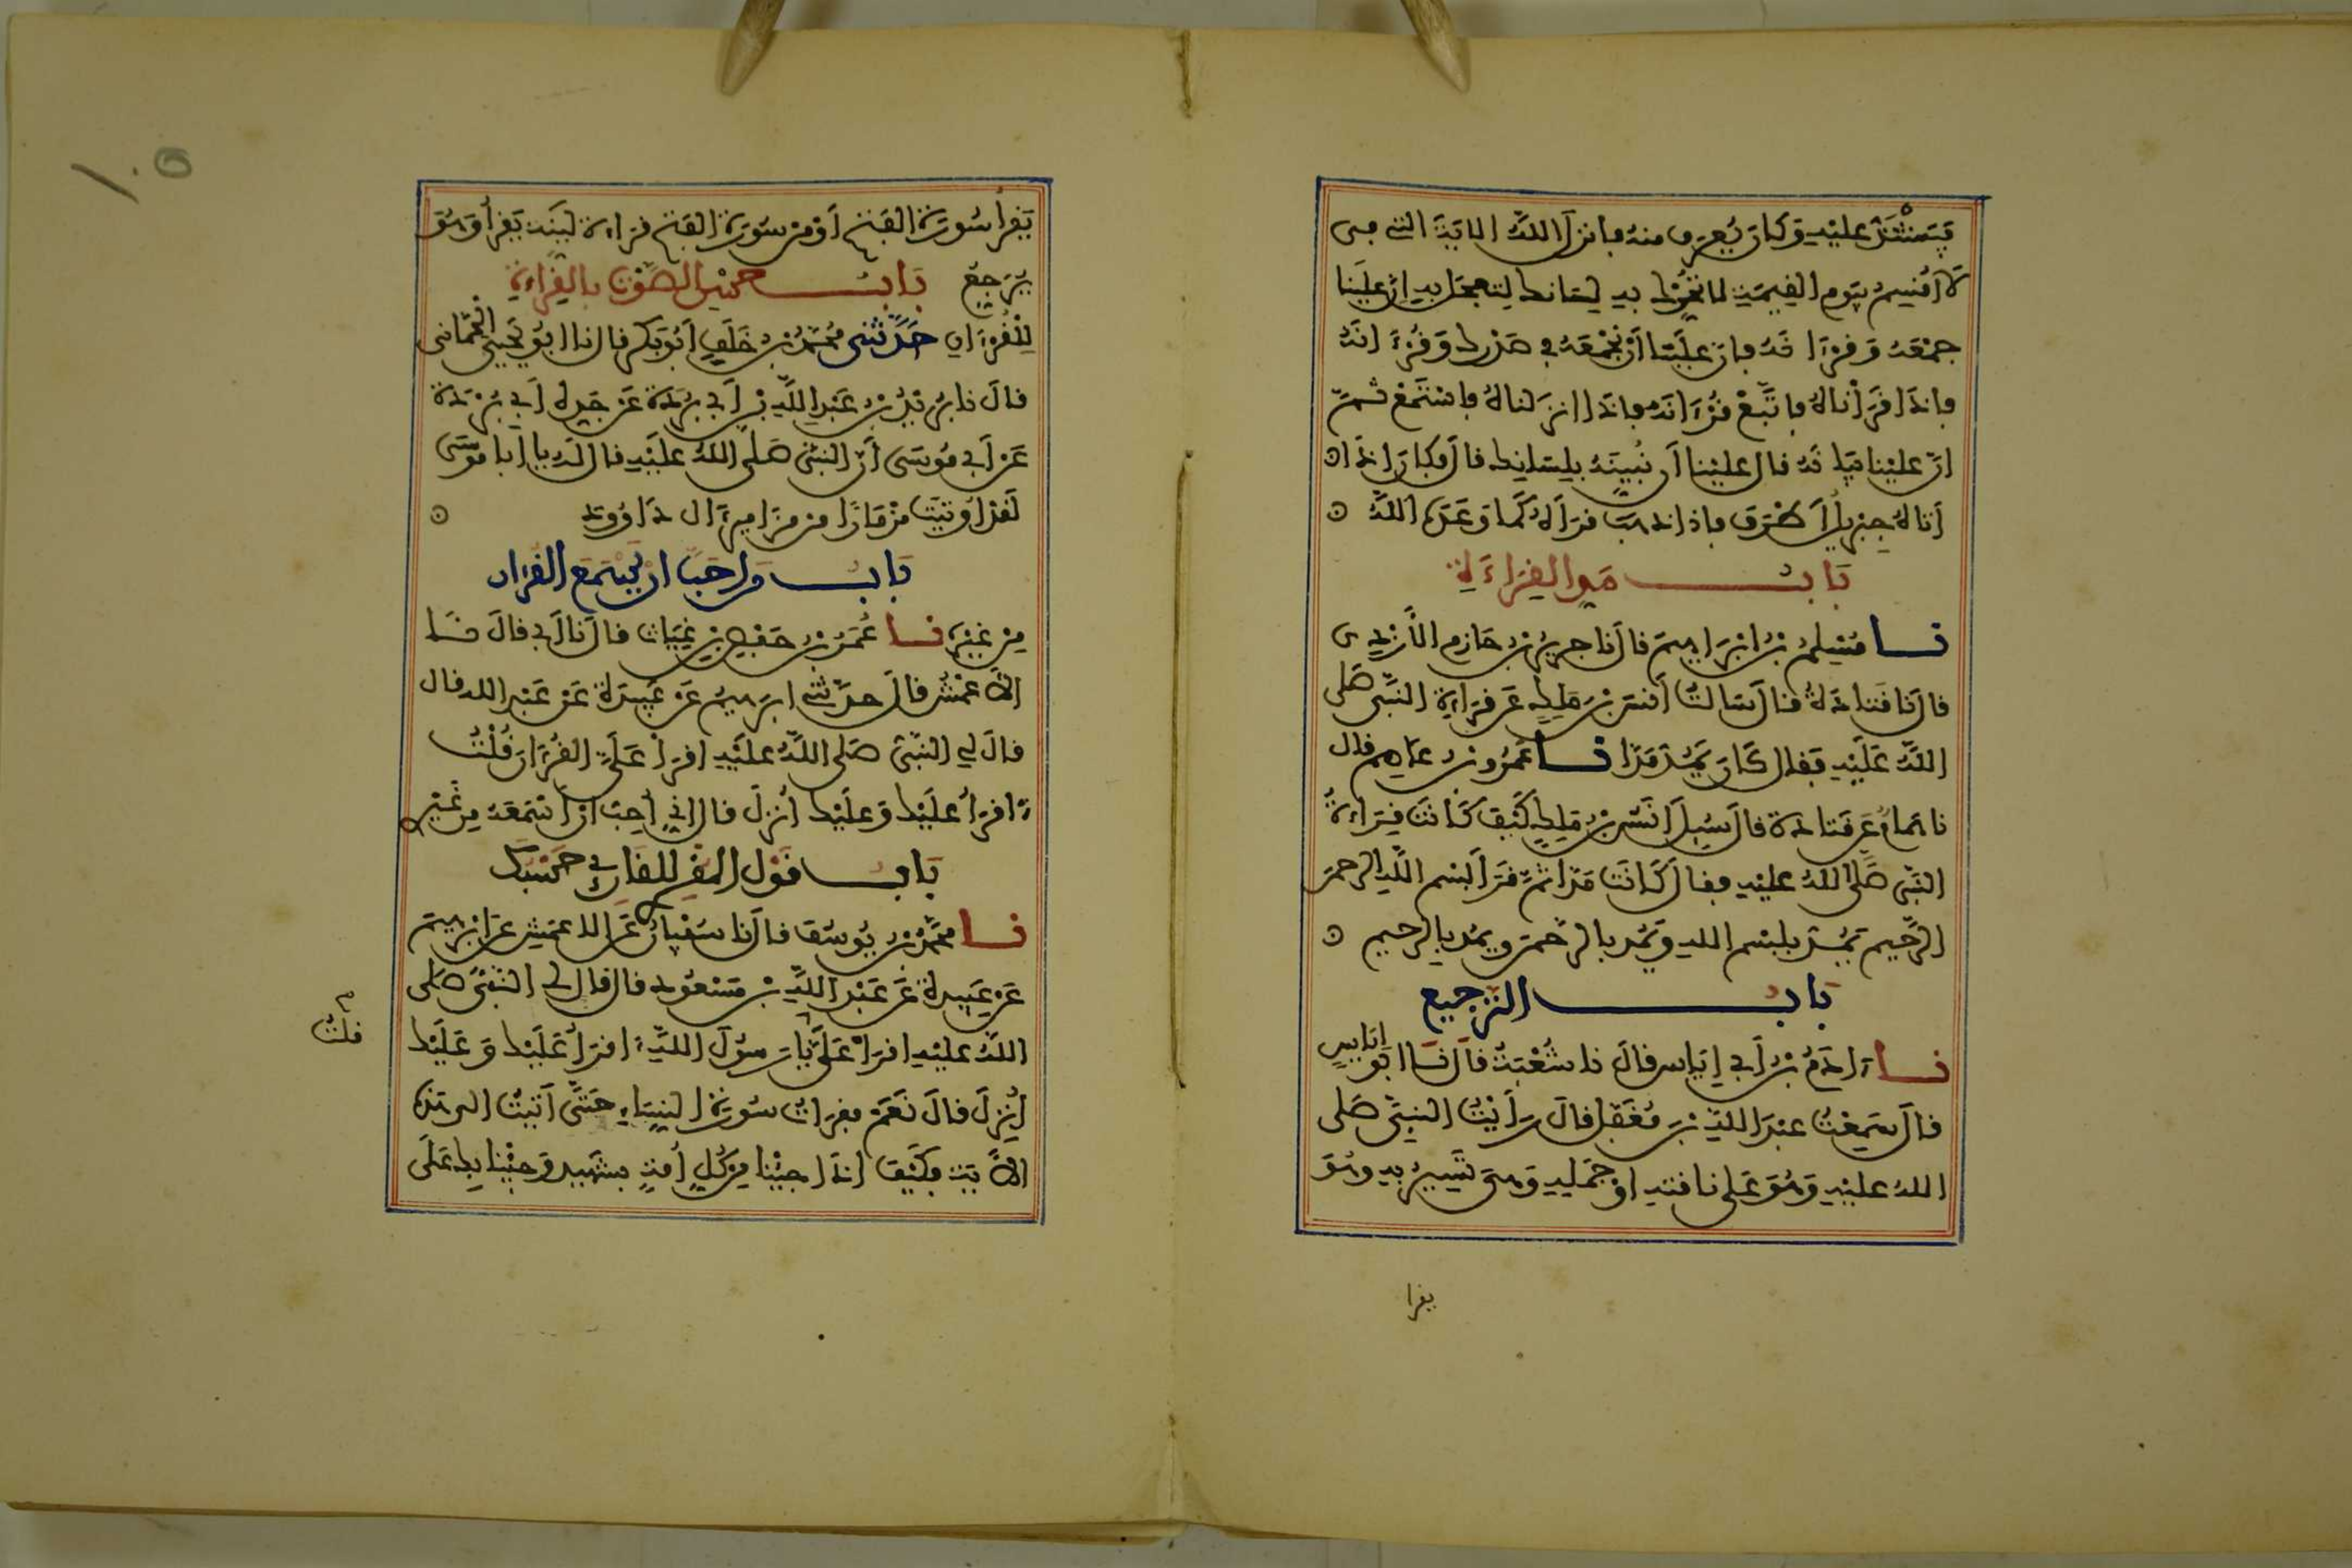 فيشتد عليه وكان يعرف منه فانزل الله الاية التي في
لا أقسم بيوم القيمة لا تحرك به لسانك لتعجل به ان علينا
جمعه وقرءانه فان علينا أن نجمعه في صدرك وقرءانه
فاذا قرأناه فاتبع قرءانه فاذا انزلناه فاستمع ثم
ان علينا بيانه قال علينا أن نبينه بلسانك قال فكان اذا
أتاه جبريل أطرق فاذا ذهب قرأه كما وعده الله
باب مد القراءة
نا مسلم بن ابراهيم قال نا جرير بن حازم الأزدي
قال نا قتادة قال سالت أنس بن ملك عن قراءة النبي صلى
الله عليه فقال كان يمد مدا نا عمرو بن عاصم قال
نا همام عن قتادة قال سيل أنس بن ملك كيف كانت قراءة
النبي صلى الله عليه فقال كانت مدا ثم قرأ بسم الله الرحمن
الرحيم يمد ببسم الله ويمد بالرحمن ويمد بالرحيم
باب الترجيع
نا ءادم بن أبي إياس قال نا شعبة قال نا ابو اياس
قال سمعت عبد الله بن مغفل قال رأيت النبي صلى
الله عليه وهو على ناقته او جمله وهي تسير به وهو
يقرا
١٠٥
يقرأ سورة الفتح أو من سورة الفتح قراءة لينة يقرأ وهو
يرجع باب حسن الصوت بالقراءة
للقرءان حدثني محمد بن خلف أبو بكر قال نا ابو يحيى الحماني
قال نا بريد بن عبد الله بن أبي بردة عن جده أبي بردة
عن أبي موسى أن النبي صلى الله عليه قال له يا ابا موسى
لقد أوتيت مزمارا من مزامير ءال داوود
باب من احب ان يستمع القرءان
من غيره نا عمر بن حفص بن غياث قال نا أبي قال نا
الأعمش قال حدثني ابرهيم عن عبيدة عن عبد الله قال
قال لي النبي صلى الله عليه اقرأ علي القرءان قلت
ءاقرأ عليك وعليك أنزل قال اني أحب ان أسمعه من غيري
باب قول المقرئ للقارئ حسبك
نا محمد بن يوسف قال نا سفيان عن الاعمش عن ابرهيم
عن عبيدة عن عبد الله بن مسعود قال قال لي النبي صلى
الله عليه اقرأ علي يا رسول الله ءاقرأ عليك وعليك
قلت
أنزل قال نعم فقرأت سورة النساء حتى أتيت الى هذه
الأية فكيف اذا جينا من كل أمة بشهيد وجينا بك على